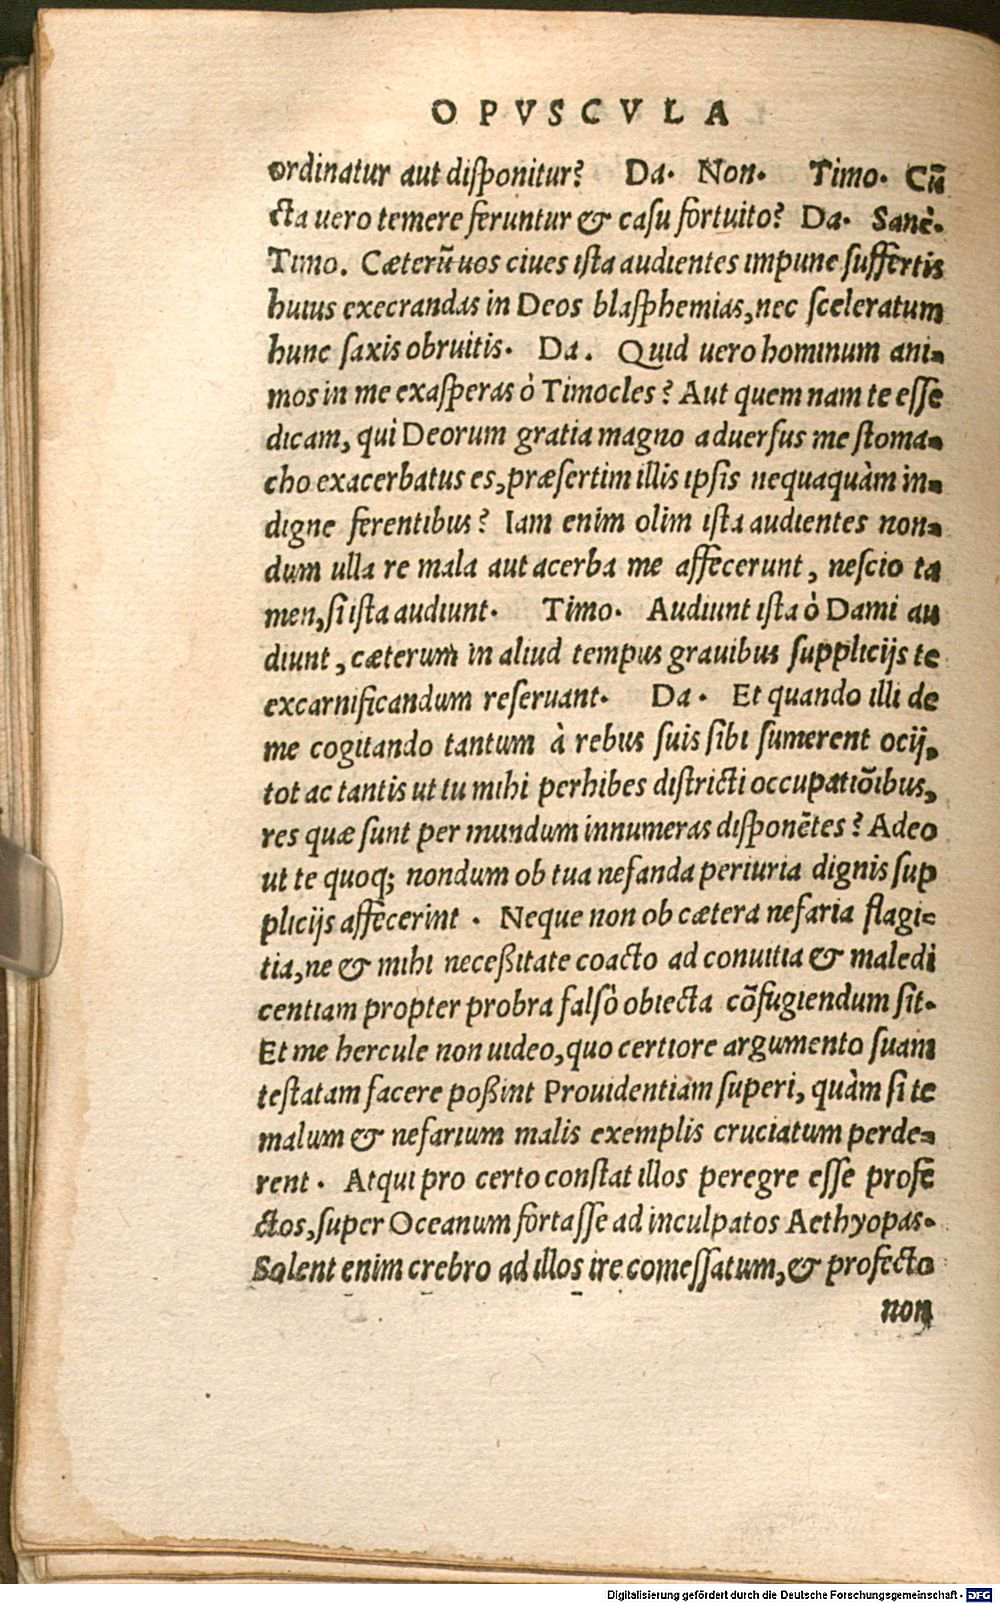 OPVSCVLA
ordinatur aut diſponitur? Da. Non. Timo. Cũ
cta uero temere feruntur & caſu fortuito? Da. Sanè.
Timo. Cæterũ uos ciues iſta audientes impune ſuffertis
huius execrandas in Deos blaſphemias, nec ſceleratum
hunc ſaxis obruitis. Da. Quid uero hominum ani-
mos in me exaſperas ò Timocles? Aut quem nam te eſſe
dicam, qui Deorum gratia magno aduerſus me ſtoma-
cho exacerbatus es, præſertim illis ipſis nequaquàm in-
digne ferentibus? Iam enim olim iſta audientes non-
dum ulla re mala aut acerba me affecerunt, neſcio ta
men, ſi iſta audiunt. Timo. Audiunt iſta ò Dami au
diunt, cæterum in aliud tempus grauibus ſupplicijs te
excarnificandum reſeruant. Da. Et quando illi de
me cogitando tantum à rebus ſuis ſibi ſumerent ocij,
tot ac tantis ut tu mihi perhibes diſtricti occupatiõibus,
res quæ ſunt per mundum innumeras diſponẽtes? Adeo
ut te quoq; nondum ob tua nefanda periuria dignis ſup
plicijs affecerint. Neque non ob cætera nefaria flagi-
tia, ne & mihi neceßitate coacto ad conuitia & maledi
centiam propter probra falſò obiecta cõfugiendum ſit.
Et me hercule non uideo, quo certiore argumento ſuam
teſtatam facere poßint Prouidentiam ſuperi, quàm ſi te
malum & nefarium malis exemplis cruciatum perde-
rent. Atqui pro certo conſtat illos peregre eſſe profe
ctos, ſuper Oceanum fortaſſe ad inculpatos Aethyopas.
Solent enim crebro ad illos ire comeſſatum, & profecto
non
Digitalisierung gefördert durch die Deutsche Forschungsgemeinschaft - DFG